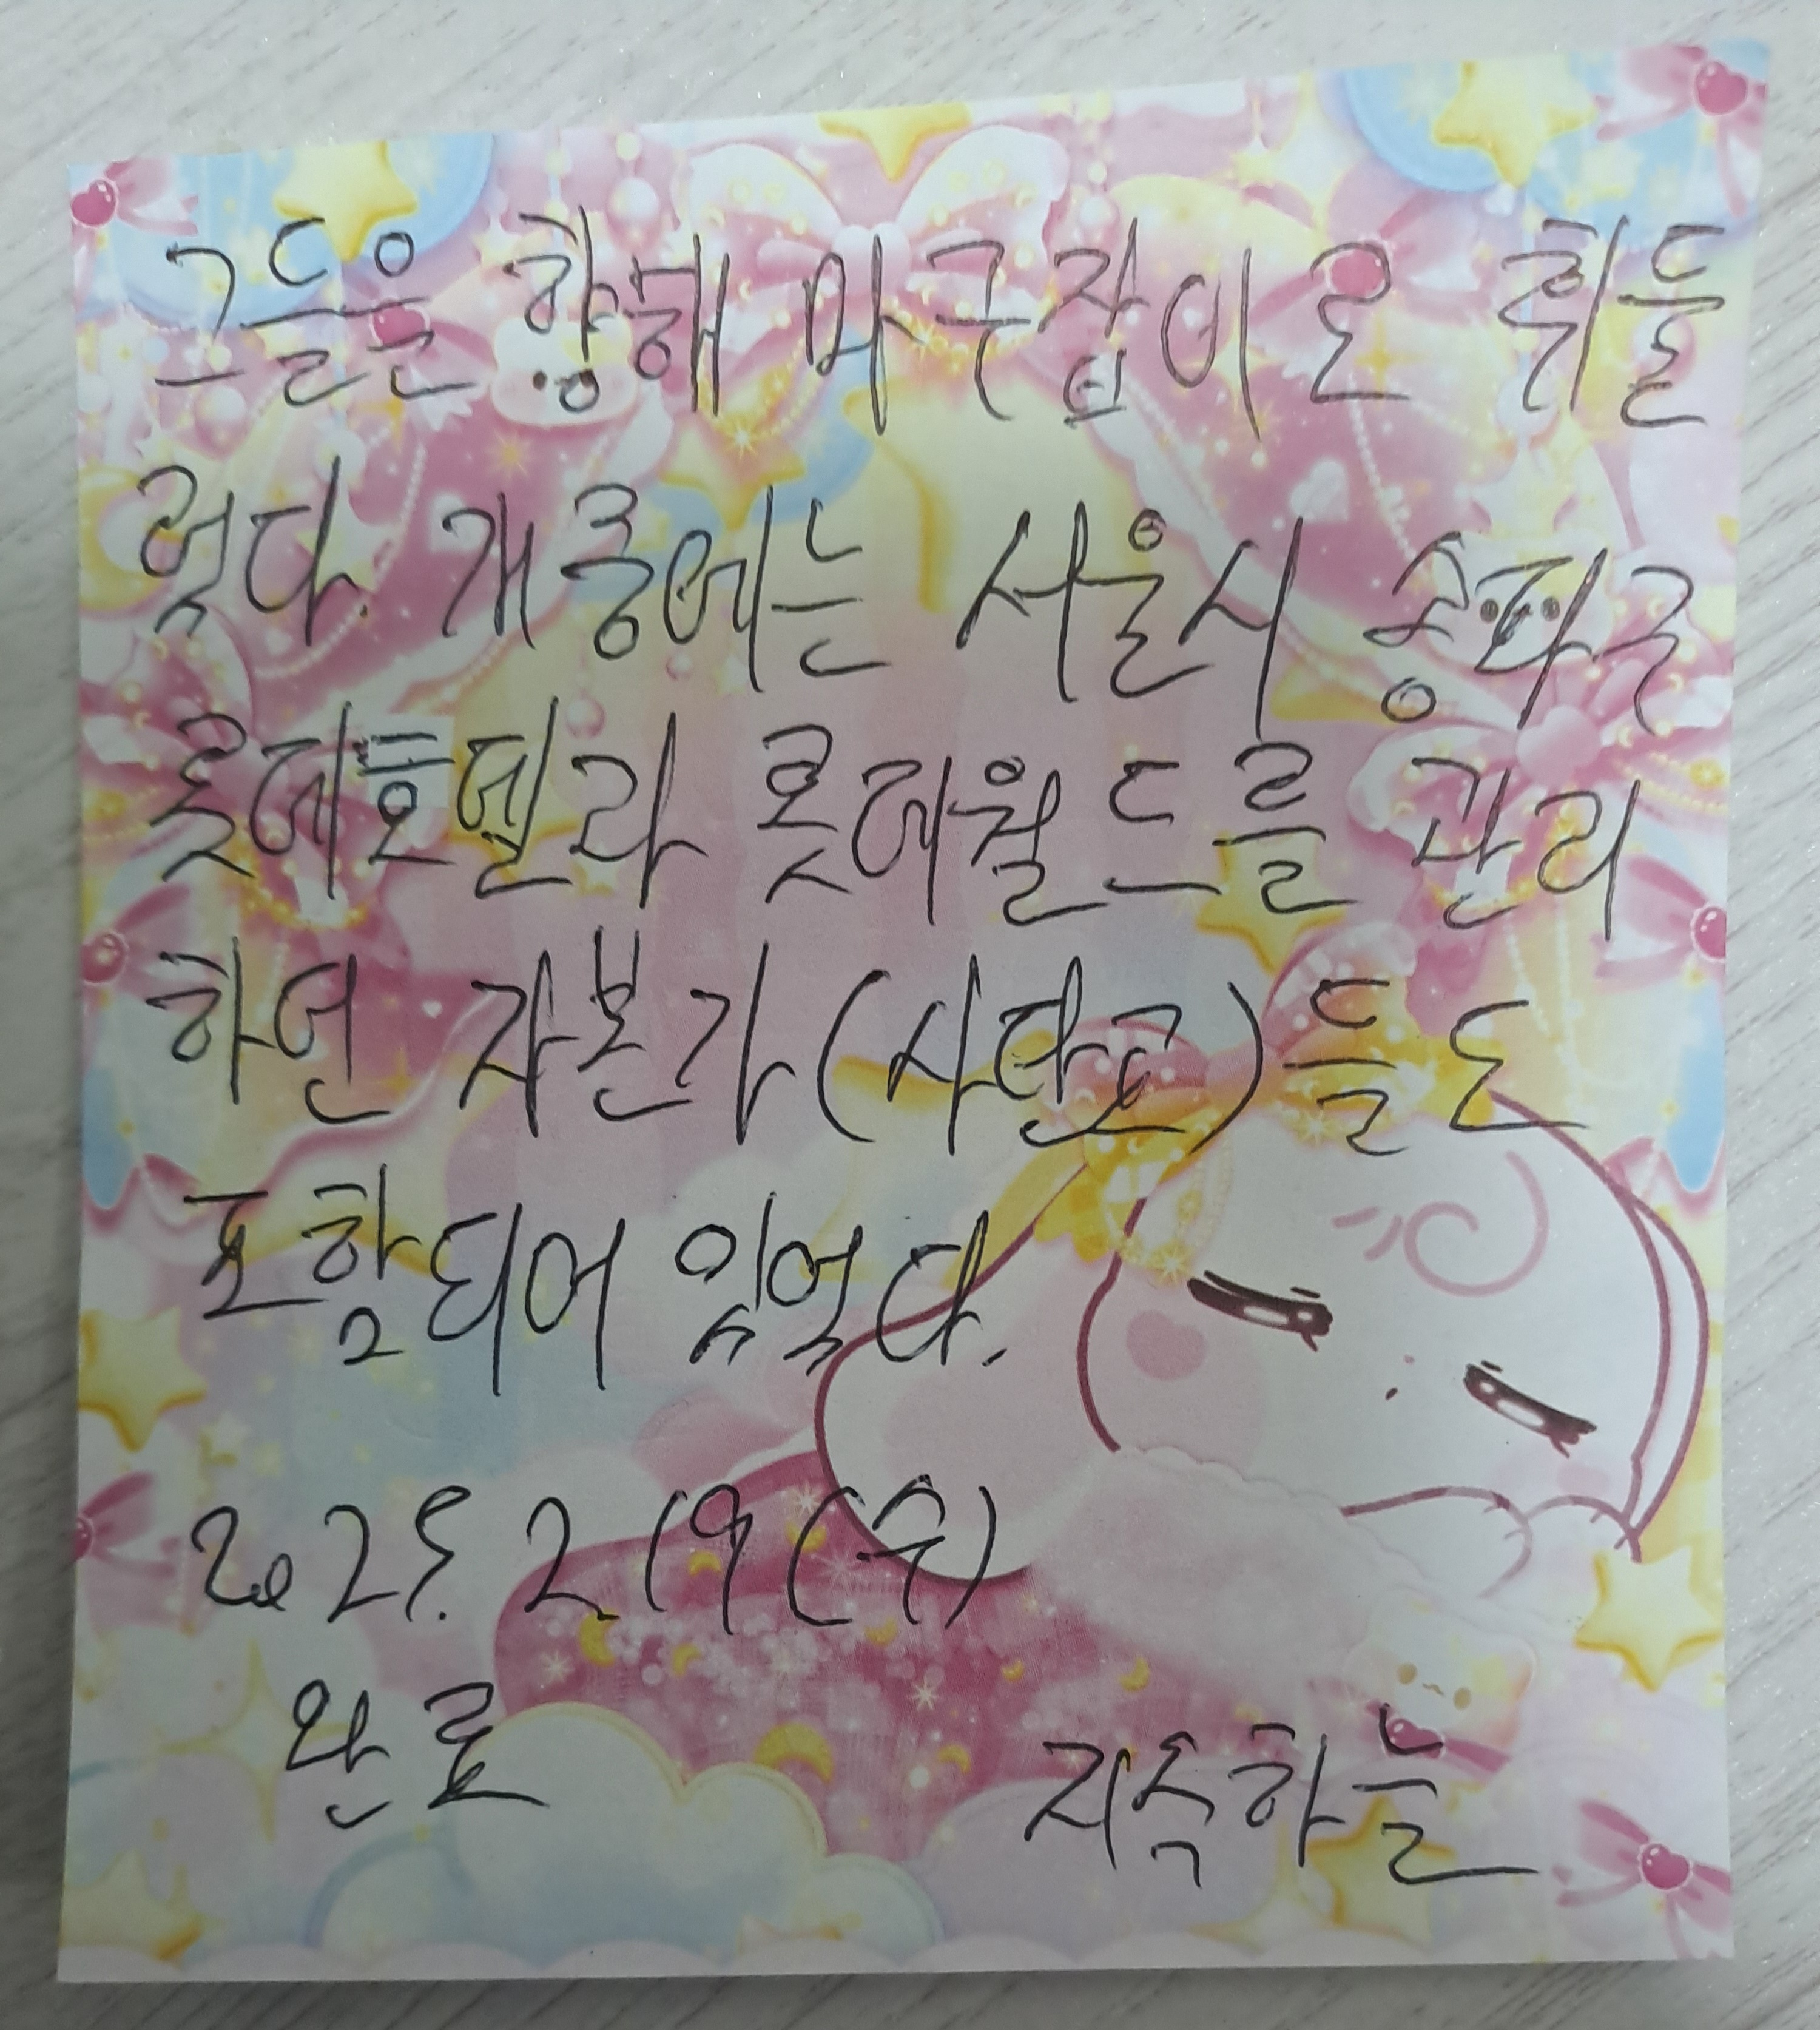 그들은 향해 마구잡이로 휘둘
렀다. 개중에는 서울시 송파구
롯데호텔과 롯데월드를 관리
하던 자본가(사탄교)들도
포함되어 있었다.
2025. 2 19 (수)
완료 지속하늘